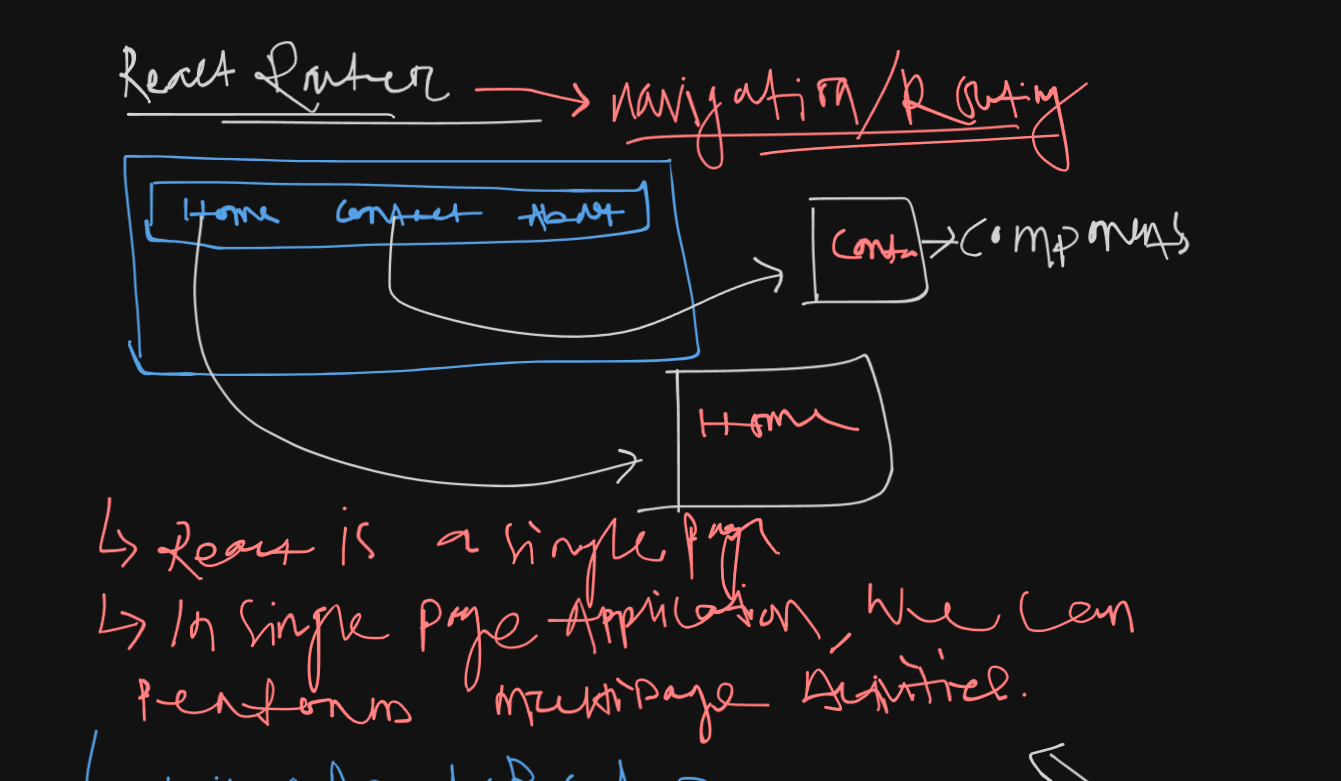 React Router → Navigation/Routing
Home Contact About
Conta → Components
Home
↳ React is a single page
↳ In Single page Application, We can
Performs multipage Activities.